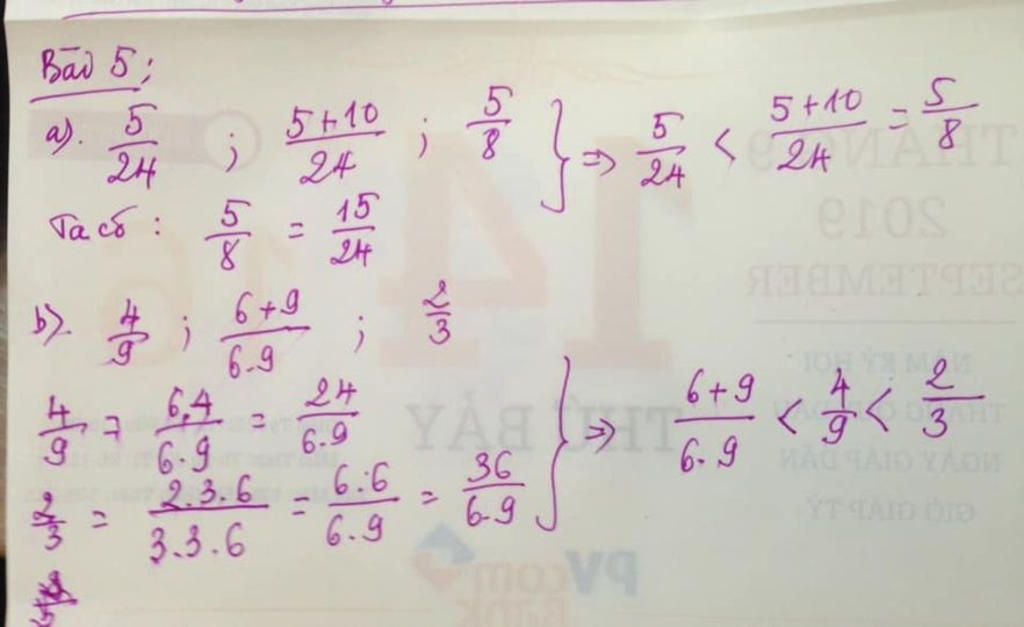 Bài 5:
a). 5/24 ; (5+10)/24 ; 5/8 } => 5/24 < (5+10)/24 = 5/8
Ta có : 5/8 = 15/24
b). 4/9 ; (6+9)/(6.9) ; 2/3
4/9 = (6.4)/(6.9) = 24/(6.9)
2/3 = (2.3.6)/(3.3.6) = (6.6)/(6.9) = 36/(6.9) } => (6+9)/(6.9) < 4/9 < 2/3
THÁNG 9
2019
SEPTEMBER
14
16
NĂM KỶ HỢI
THỨ BẢY
NGÀY GIÁP DẦN
GIỜ GIÁP TÝ
PV
com
Bank